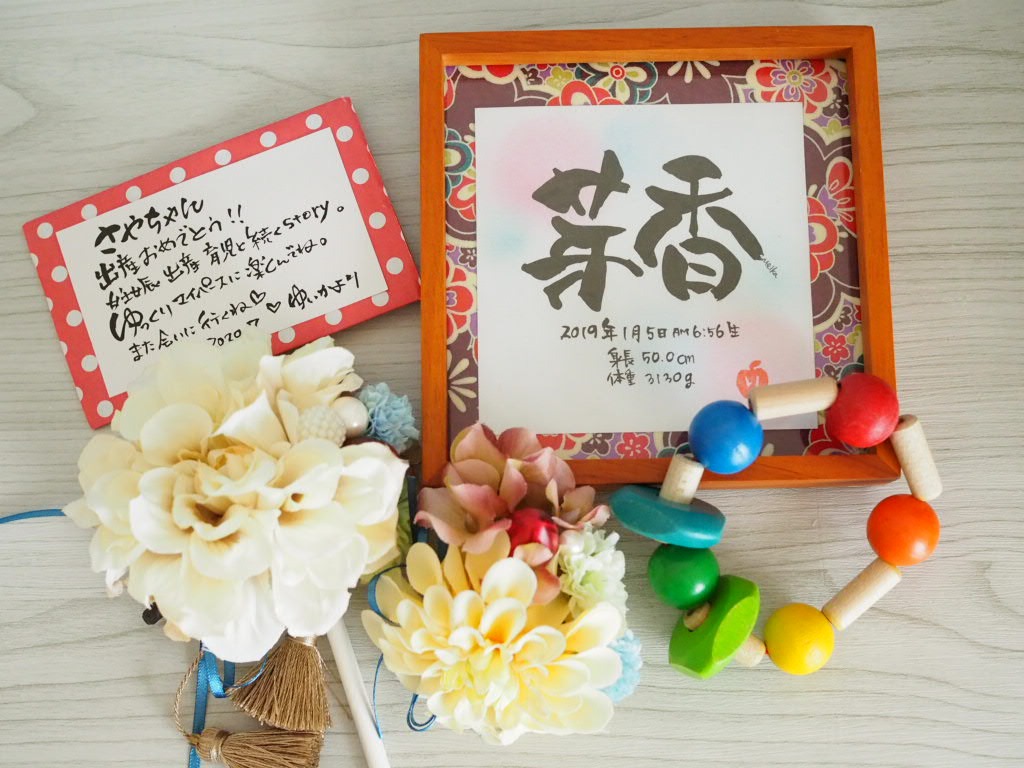 さやちゃん
出産おめでとう!!
妊娠 出産 育児と続くstory。
ゆっくりマイペースに楽しんでね。
また会いに行くね♡♡ ゆいかより
2020.7
芽香
2019年1月5日AM6:56生
身長 50.0cm
体重 3130g